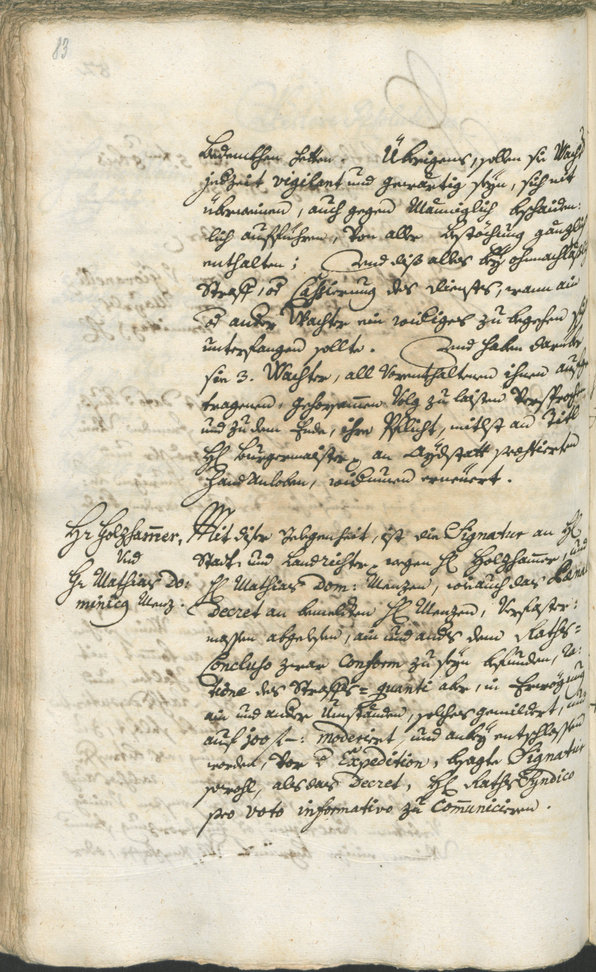 83
bedeuthen hetten. Übrigens, sollen sie
jedzeit vigilant und gewärtig seyn, sich nit
überweinen, auch gegen Männiglich beschaiden:
lich aufführen, von aller Bestöchung gänzlich
enthalten; Und diß alles bey ohnnachläßig
Straff, od Cassierung des Diensts, wann ain
od ander Wachter ein widriges zu begehen sich
unterfangen sollte. Und haben darüber
sie 3. Wachter, all Vorenthaltenem ihnen aufge
tragenen, gehorsammen Volg zu laisten versprochen
und zu dem Ende, ihre Pflicht, mitlst an Titl
H Burgermaister an Aydstatt praestierten
handanloben, widrumen erneuert.
Hr Holzhammer,
Und
Hr Mathias Do:
minicq Menz:
Mit diser Gelegenheit, ist die Signatur an H
Statt, und Landrichter wegen H Holzhammer, und
H Mathias Dom: Menzen, wie auch das
Decret an bemeldten H Menzen, verfaster:
massen abgelesen, ain und andes dem Raths=
Concluso zwar Conform zu seyn befunden, ra:
tione des Straffs=quanti aber, in Erwögung
ain und ander Umständen, solches gemildert, und
auf 300 f: moderiert und anbey entschlossen
worden, vor d Expedition, besagte Signatur
sowohl, als das Decret, H Raths Syndico
pro voto informativo zu Communicieren.